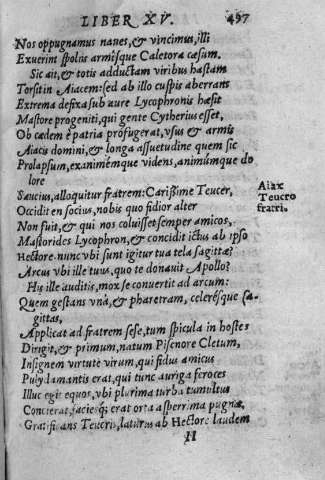 LIBER XV. 497
Nos oppugnamus naues, & vincimus, illi
Exuerint spolijs armisque Caletora cæsum.
Sic ait, & totis adductam viribus hastam
Torsit in Aiacem: sed ab illo cuspis aberrans
Extrema defixa sub aure Lycophronis hæsit
Mastore progeniti, qui gente Cytherius esset,
Ob cædem è patria profugerat, vsus & armis
Aiacis domini, & longa assuetudine quem sic
Prolapsum, exanimémque videns, animúmque do
lore
Saucius, alloquitur fratrem: Carissime Teucer,
Aiax
Teucro
fratri.
Occidit en socius, nobis quo fidior alter
Non fuit, & qui nos coluisset semper amicos,
Mastorides Lycophron, & concidit ictus ab ipso
Hectore. nunc vbi sunt igitur tua tela sagittæ?
Arcus vbi ille tuus, quo te donauit Apollo?
Hys ille auditis, mox se conuertit ad arcum:
Quem gestans vnà, & pharetram, celerésque sa-
gittas,
Applicat ad fratrem sese, tum spicula in hostes
Dirigit, & primum, natum Pisenore Cletum,
Insignem virtute virum, qui fidus amicus
Pulydamantis erat, qui tunc auriga feroces
Illuc egit equos, vbi plurima turba tumultus
Concierat, facieq; erat orta asperrima pugnæ,
Gratificans Teucris, laturus ab Hectore laudem
II